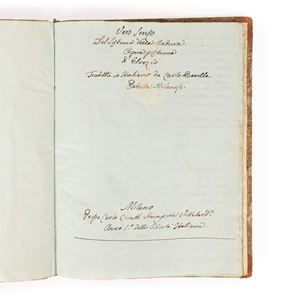 Vero Senso
Del Sistema della Natura
Opera postuma
d'Elvezio
Tradotta in Italiano da Carlo Barelle
Patriota Milanese.
Milano
Presso Carlo Civati Stampatore
Anno I.º della Libertà Italiana.